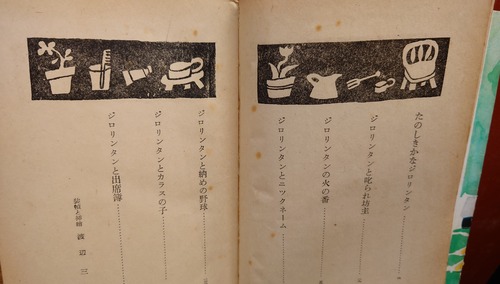 たのしきかなジロリンタン
ジロリンタンと叱られ坊主
ジロリンタンの火の番
ジロリンタンとニックネーム
ジロリンタンと納めの野球
ジロリンタンとカラスの子
ジロリンタンと出席簿
装幀と挿繪 渡辺三